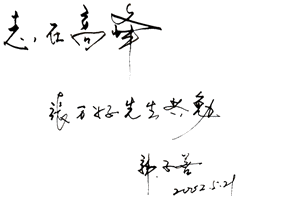 志在高峰
張万好先生共勉
郭子善
2002.5.21